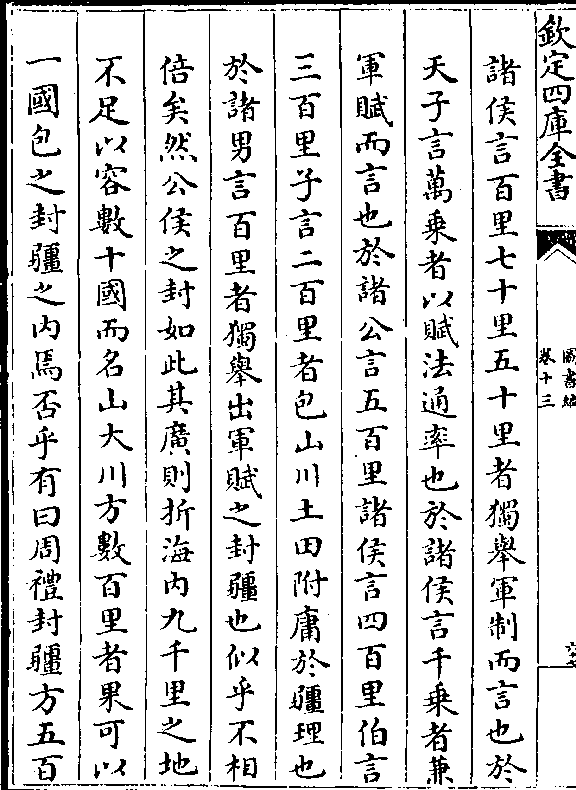 欽定四庫全書
圖書編
卷十三
諸侯言百里七十里五十里者獨舉軍制而言也於
天子言萬乗者以賦法通率也於諸侯言千乗者兼
軍賦而言也於諸公言五百里諸侯言四百里伯言
三百里子言二百里者包山川土田附庸於疆理也
於諸男言百里者獨舉出軍賦之封疆也似乎不相
倍矣然公侯之封如此其廣則折海内九千里之地
不足以容數十國而名山大川方數百里者果可以
一國包之封疆之内焉否乎有曰周禮封疆方五百